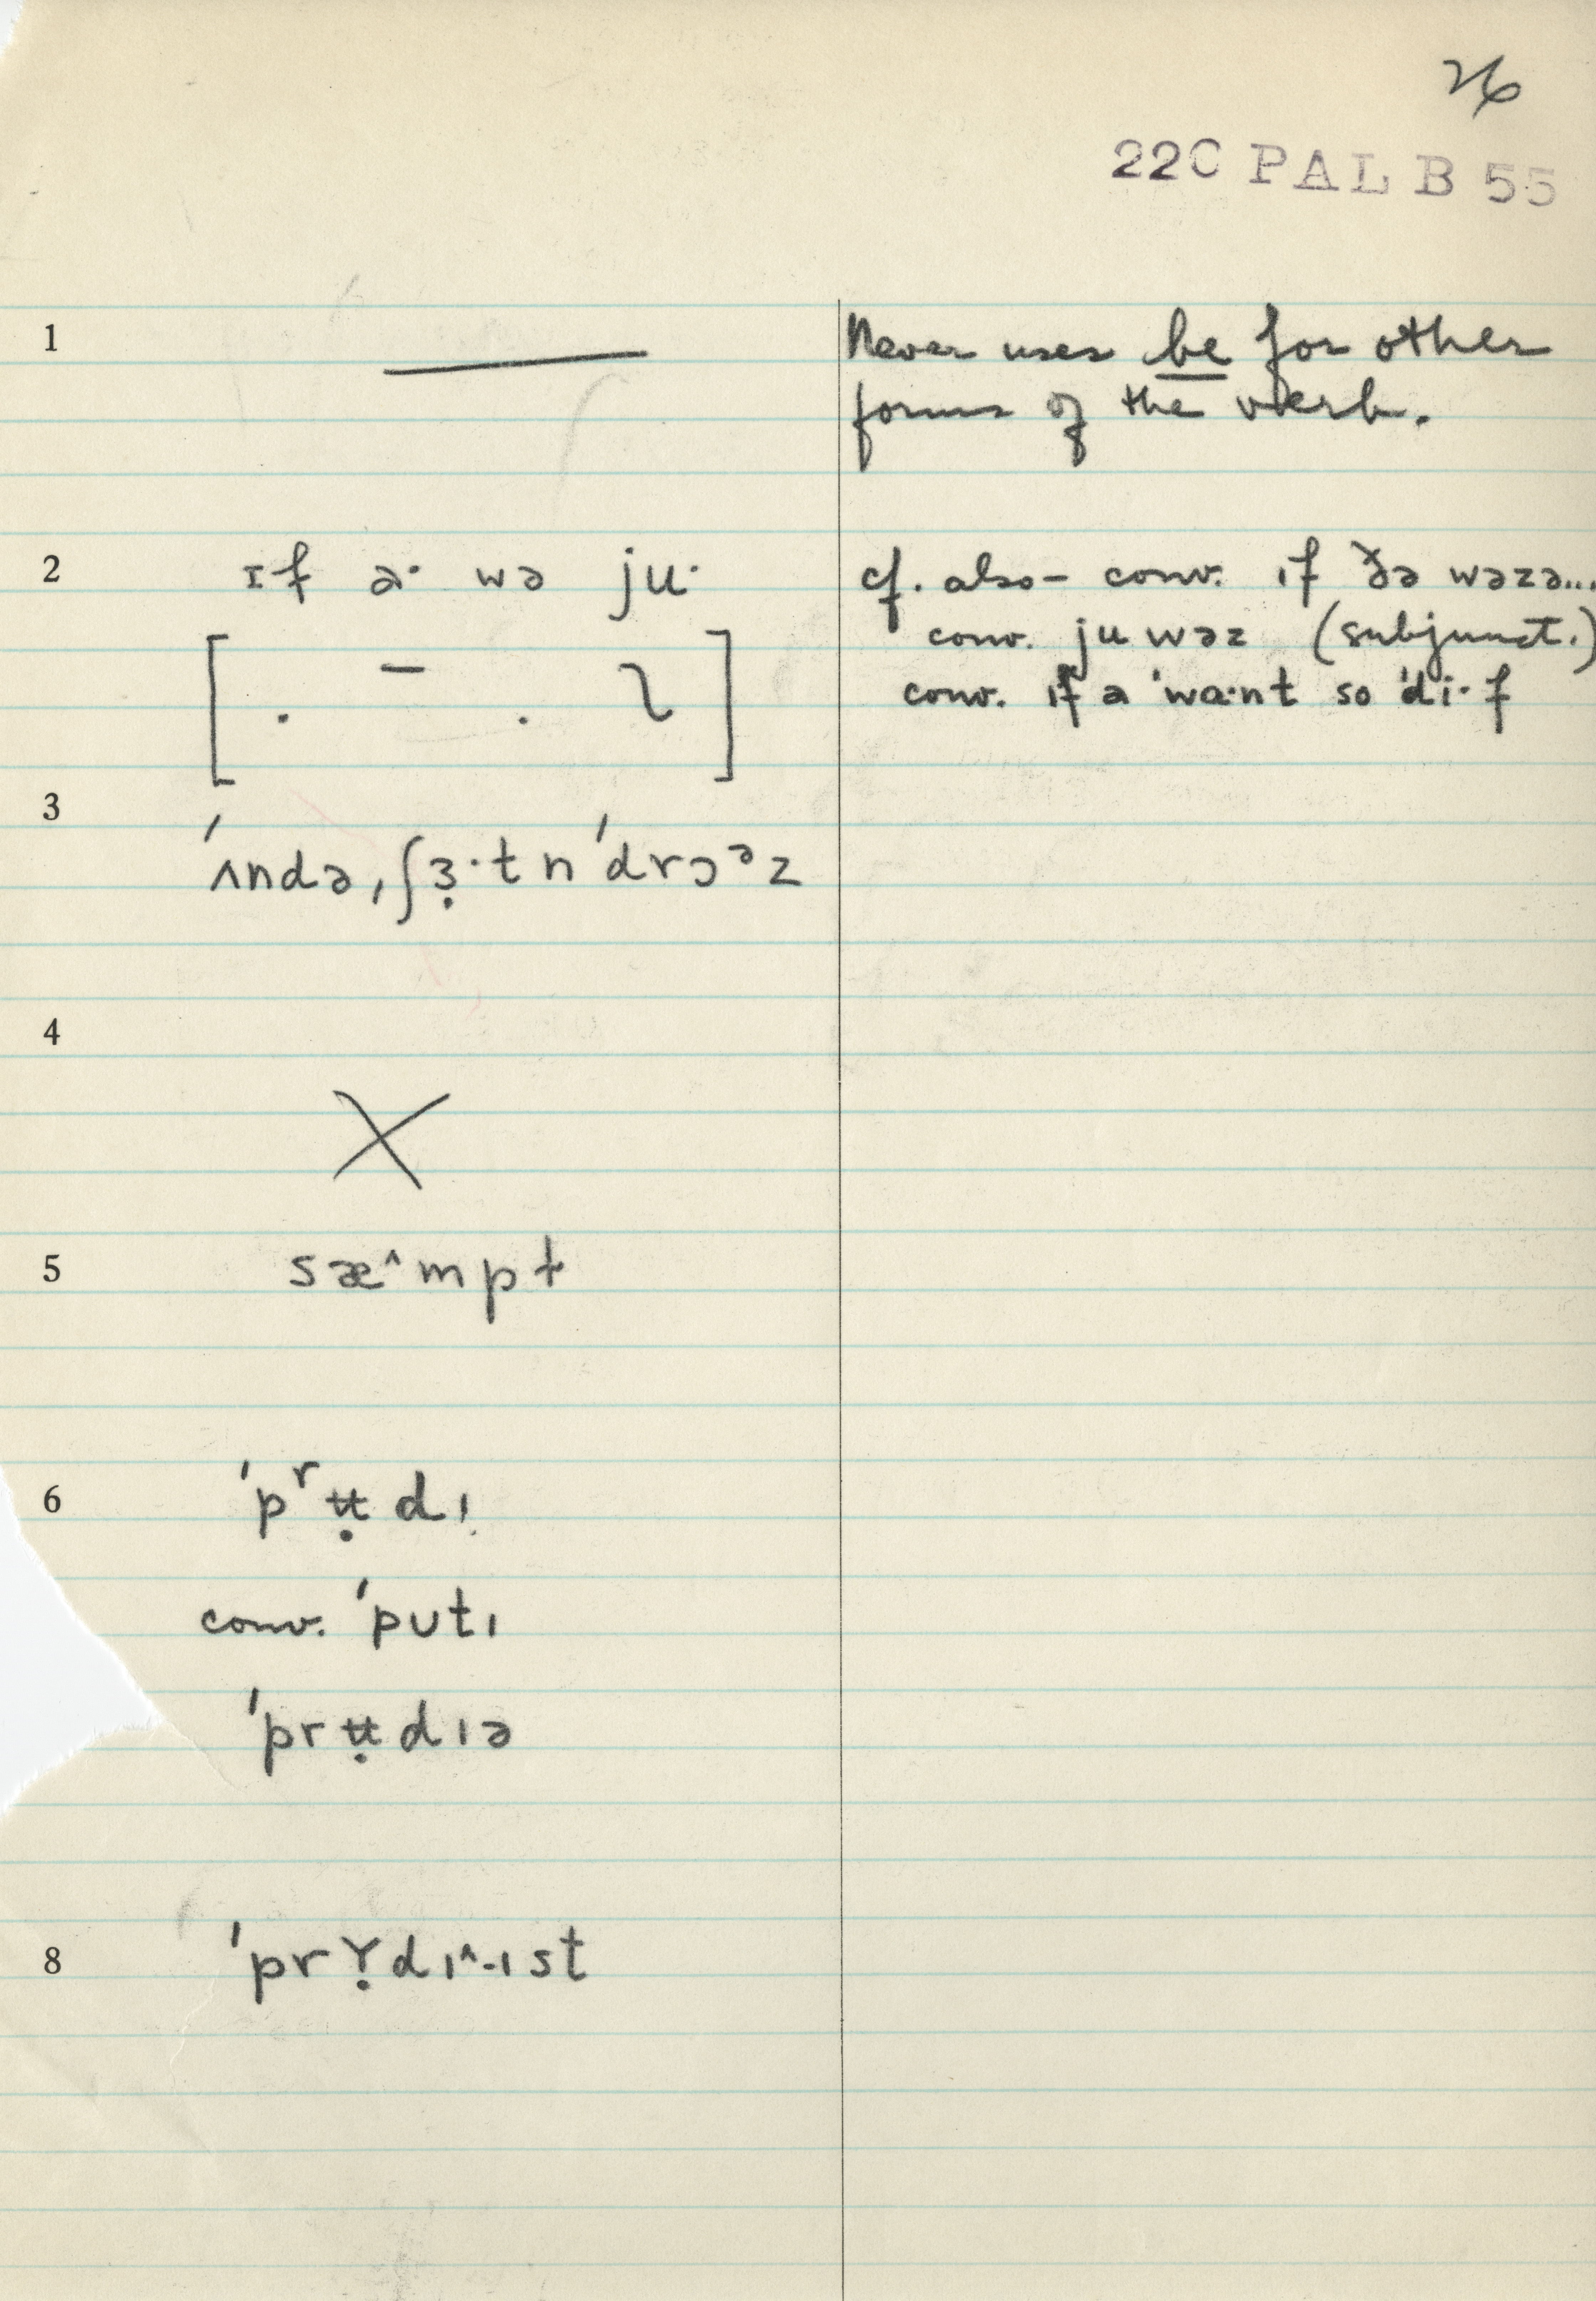 26
22C PAL B 55
1 Never uses be for other
forms of the verb.
2 ɪf a· wə ju· cf. also – conv. ɪf ðə wəzə...
conv. ju wəz (subjunct.)
[ . – . ] conv. ɪf a ˈwa·nt so ˈdi·f
3
ˈʌndə,ʃɜ̣·tnˈdrɔᵊz
4
X
5 sæ^mpt
6 ˈpʳʉ̣dɪ
conv. ˈputɪ
ˈprʉ̣dɪə
8 ˈprʏ̣dɪ^-ɪst